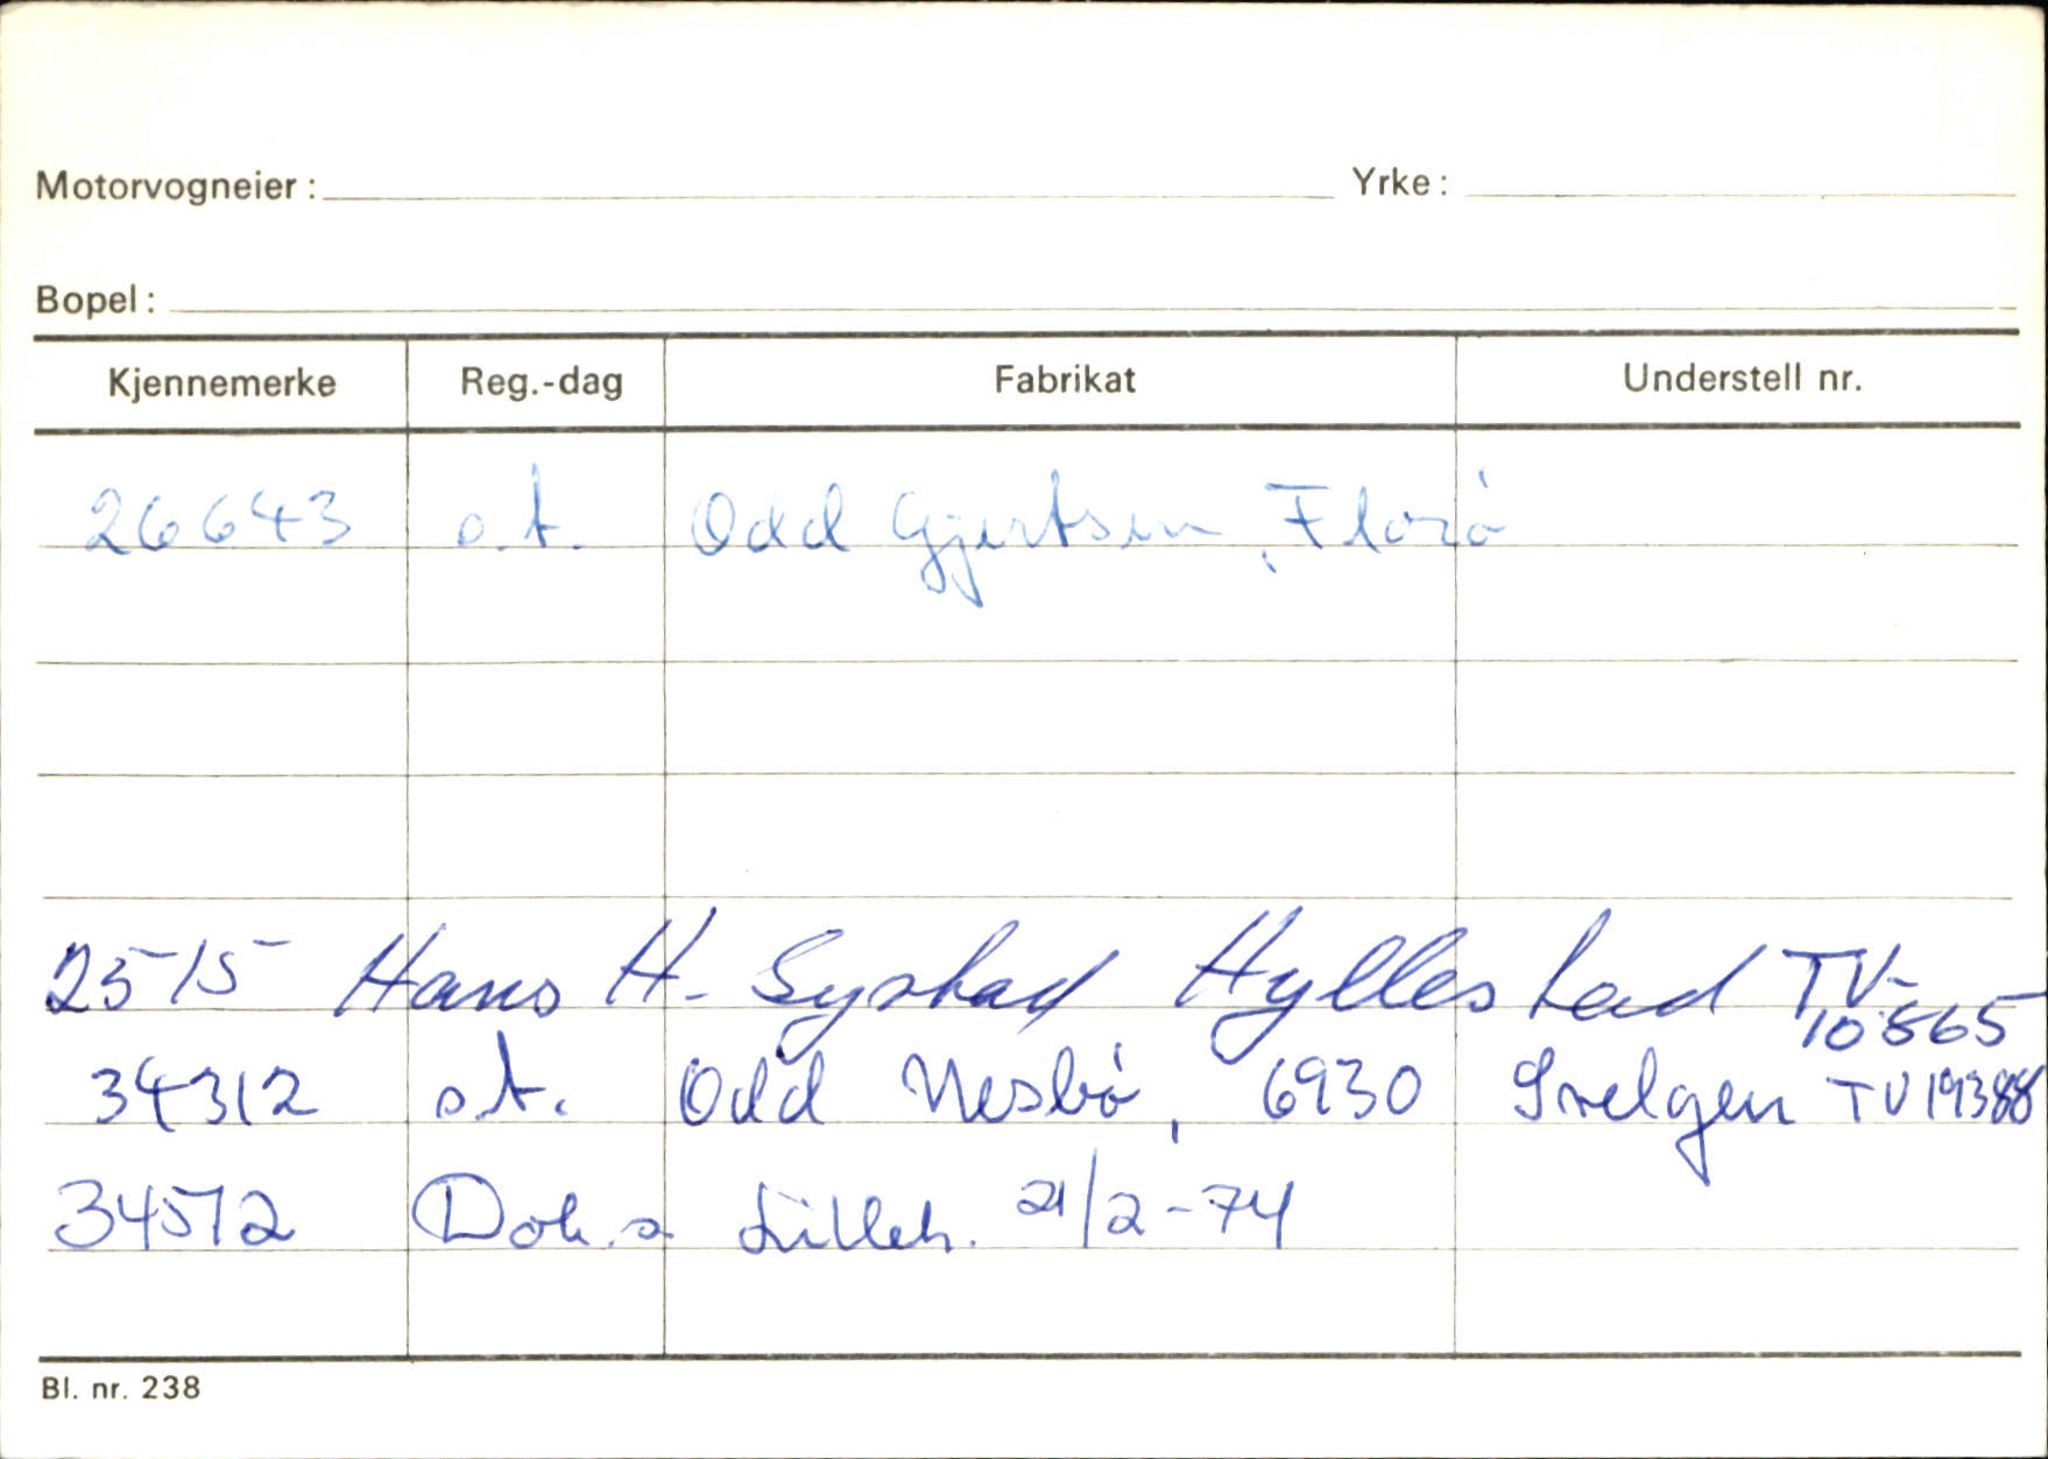 Motorvogneier: Yrke:
Bopel:
Kjennemerke Reg.-dag Fabrikat Understell nr.
26643 o.t. Odd Gjertsen, Florø
2515 Hans H. Systad Hyllestad TV-
10865
34312 o.t. Odd Nesbø, 6930 Svelgen TV19388
34512 Dok.s Lilleh. 21/2-74
Bl. nr. 238